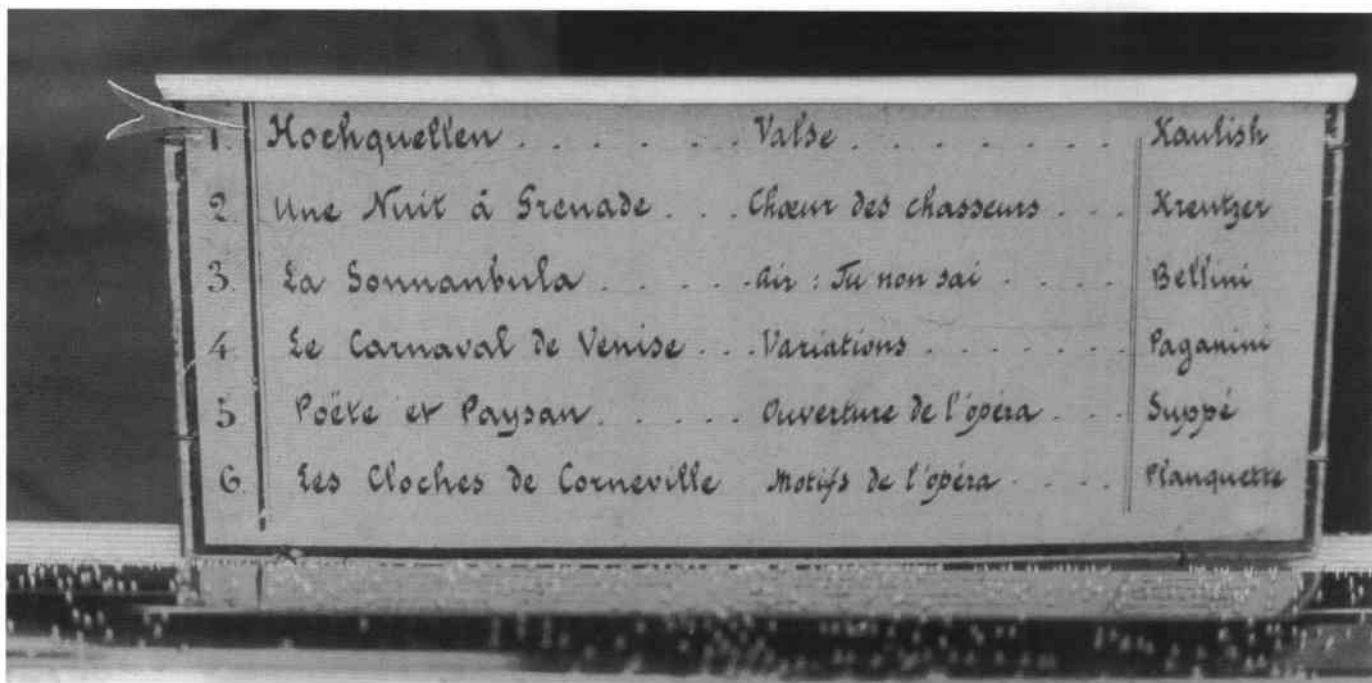 1. Hochquellen . . . . . . Valse . . . . . . . Kaulish
2. Une Nuit à Grenade . . . Chœur des chasseurs . . . Kreutzer
3. La Sonnanbula . . . . . Air : Tu non sai . . . . Bellini
4. Le Carnaval de Venise . . . Variations . . . . . . . Paganini
5 Poëte et Paysan . . . . . Ouverture de l'opéra . . . Suppé
6. Les Cloches de Corneville Motifs de l'opéra . . . . Planquette